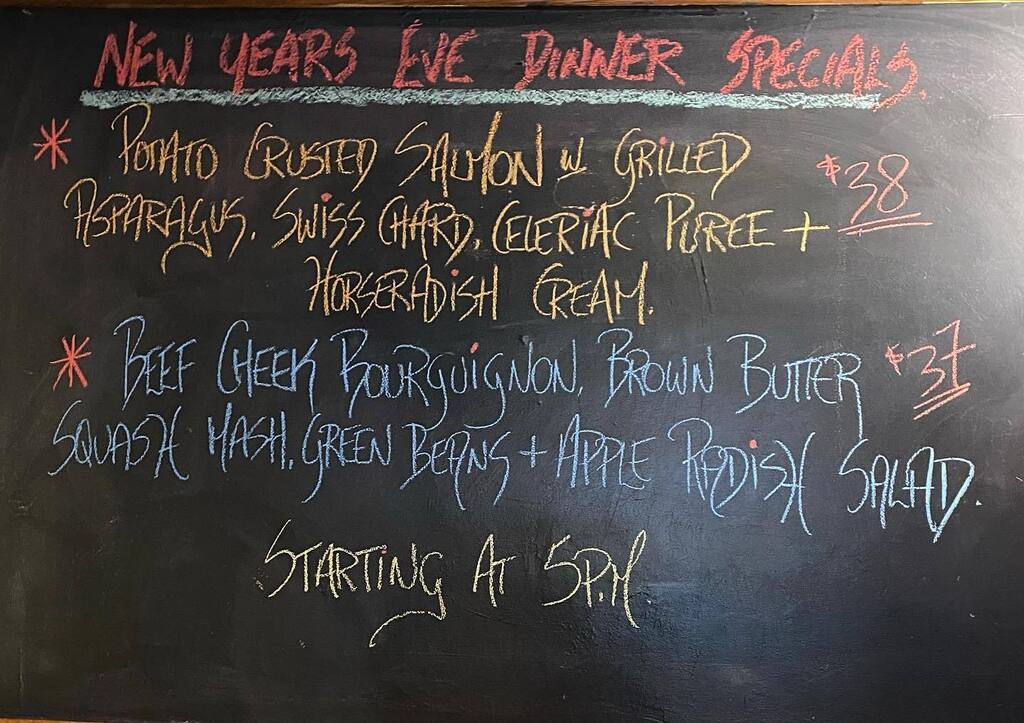 NEW YEARS EVE DINNER SPECIALS
* POTATO CRUSTED SALMON W GRILLED $38
ASPARAGUS, SWISS CHARD, CELERIAC PUREE +
HORSERADISH CREAM.
* BEEF CHEEK BOURGUIGNON, BROWN BUTTER $37
SQUASH MASH, GREEN BEANS + APPLE RADISH SALAD.
STARTING AT 5P.M